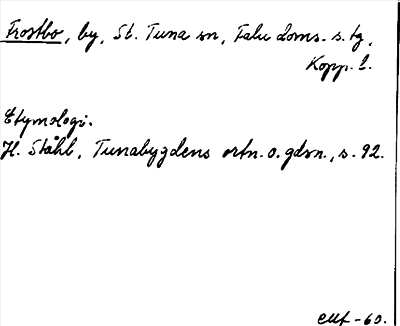 Frostbo, by, St. Tuna sn, Falu doms. s. tg,
Kopp. l.
Etymologi.
H. Ståhl, Tunabygdens ortn. o. gdsn., s. 92.
-60.